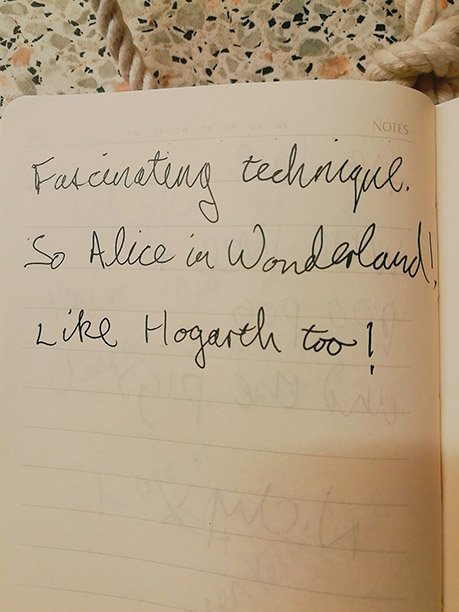 NOTES
Fascinating technique.
So Alice in Wonderland!
Like Hogarth too!